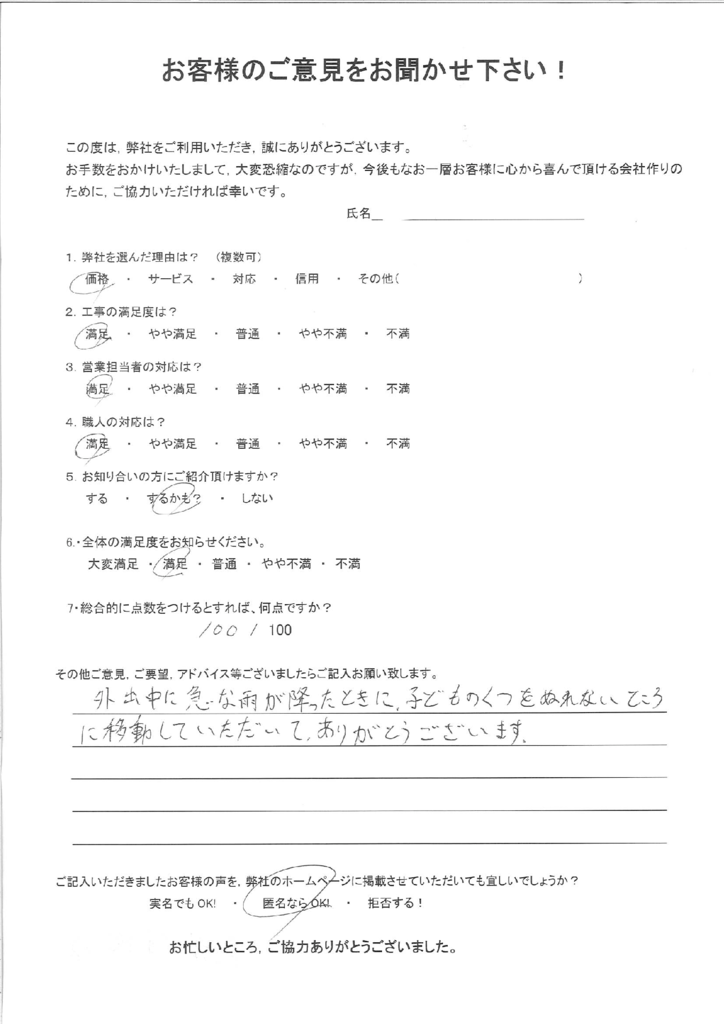 お客様のご意見をお聞かせ下さい！
この度は，弊社をご利用いただき，誠にありがとうございます。
お手数をおかけいたしまして，大変恐縮なのですが，今後もなお一層お客様に心から喜んで頂ける会社作りの
ために，ご協力いただければ幸いです。
氏名
1．弊社を選んだ理由は？　（複数可）
価格　・　サービス　・　対応　・　信用　・　その他（　　　　　　　）
2．工事の満足度は？
満足　・　やや満足　・　普通　・　やや不満　・　不満
3．営業担当者の対応は？
満足　・　やや満足　・　普通　・　やや不満　・　不満
4．職人の対応は？
満足　・　やや満足　・　普通　・　やや不満　・　不満
5．お知り合いの方にご紹介頂けますか？
する　・　するかも？　・　しない
6.・全体の満足度をお知らせください。
大変満足 ・ 満足 ・ 普通 ・ やや不満 ・ 不満
7・総合的に点数をつけるとすれば、何点ですか？
100 / 100
その他ご意見，ご要望，アドバイス等ございましたらご記入お願い致します。
外出中に急な雨が降ったときに，子どものくつをぬれないところ
に移動していただいて，ありがとうございます。
ご記入いただきましたお客様の声を，弊社のホームページに掲載させていただいても宜しいでしょうか？
実名でもOK!　・　匿名ならOK!　・　拒否する！
お忙しいところ，ご協力ありがとうございました。